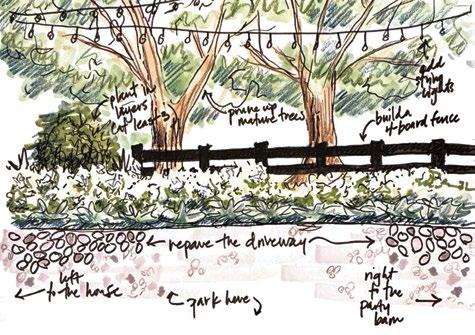 add
string
lights
plant in
layers
(at least 3
prune up
mature trees
build a
4-board fence
repave the driveway
left
to the house
park here
right
to the
party
barn